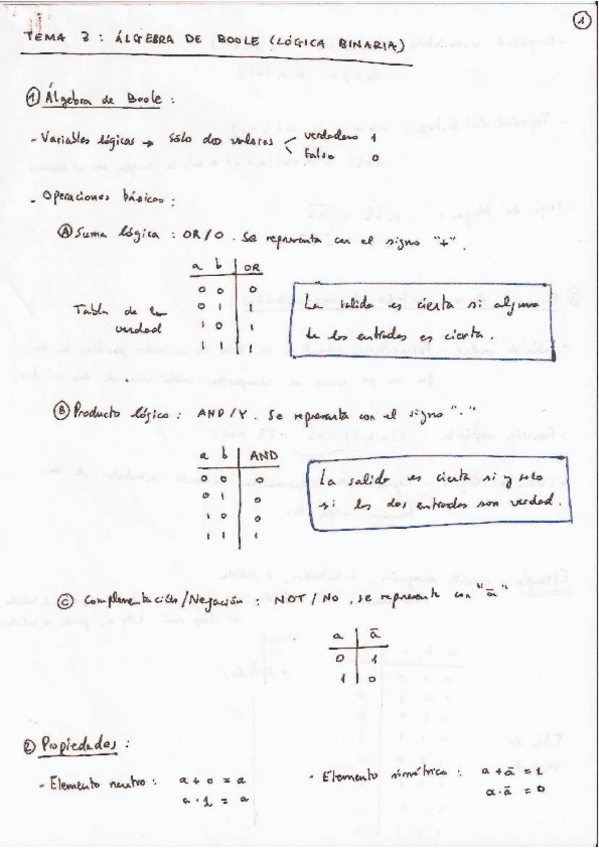 1
TEMA 3: ÁLGEBRA DE BOOLE (LÓGICA BINARIA)
① Álgebra de Boole:
- Variables lógicas → sólo dos valores
verdadero 1
Falso 0
- Operaciones básicas:
Ⓐ Suma lógica: OR/O. Se representa con el signo "+".
Tabla de la verdad
a b | OR
0 0 | 0
0 1 | 1
1 0 | 1
1 1 | 1
La salida es cierta si alguna
de las entradas es cierta.
Ⓑ Producto lógico: AND/Y. Se representa con el signo "."
a b | AND
0 0 | 0
0 1 | 0
1 0 | 0
1 1 | 1
La salida es cierta si y solo
si las dos entradas son verdad.
Ⓒ Complementación/Negación: NOT/NO. Se representa con "ā"
a | ā
0 | 1
1 | 0
② Propiedades:
- Elemento neutro: a + 0 = a
a · 1 = a
- Elemento simétrico: a + ā = 1
a · ā = 0